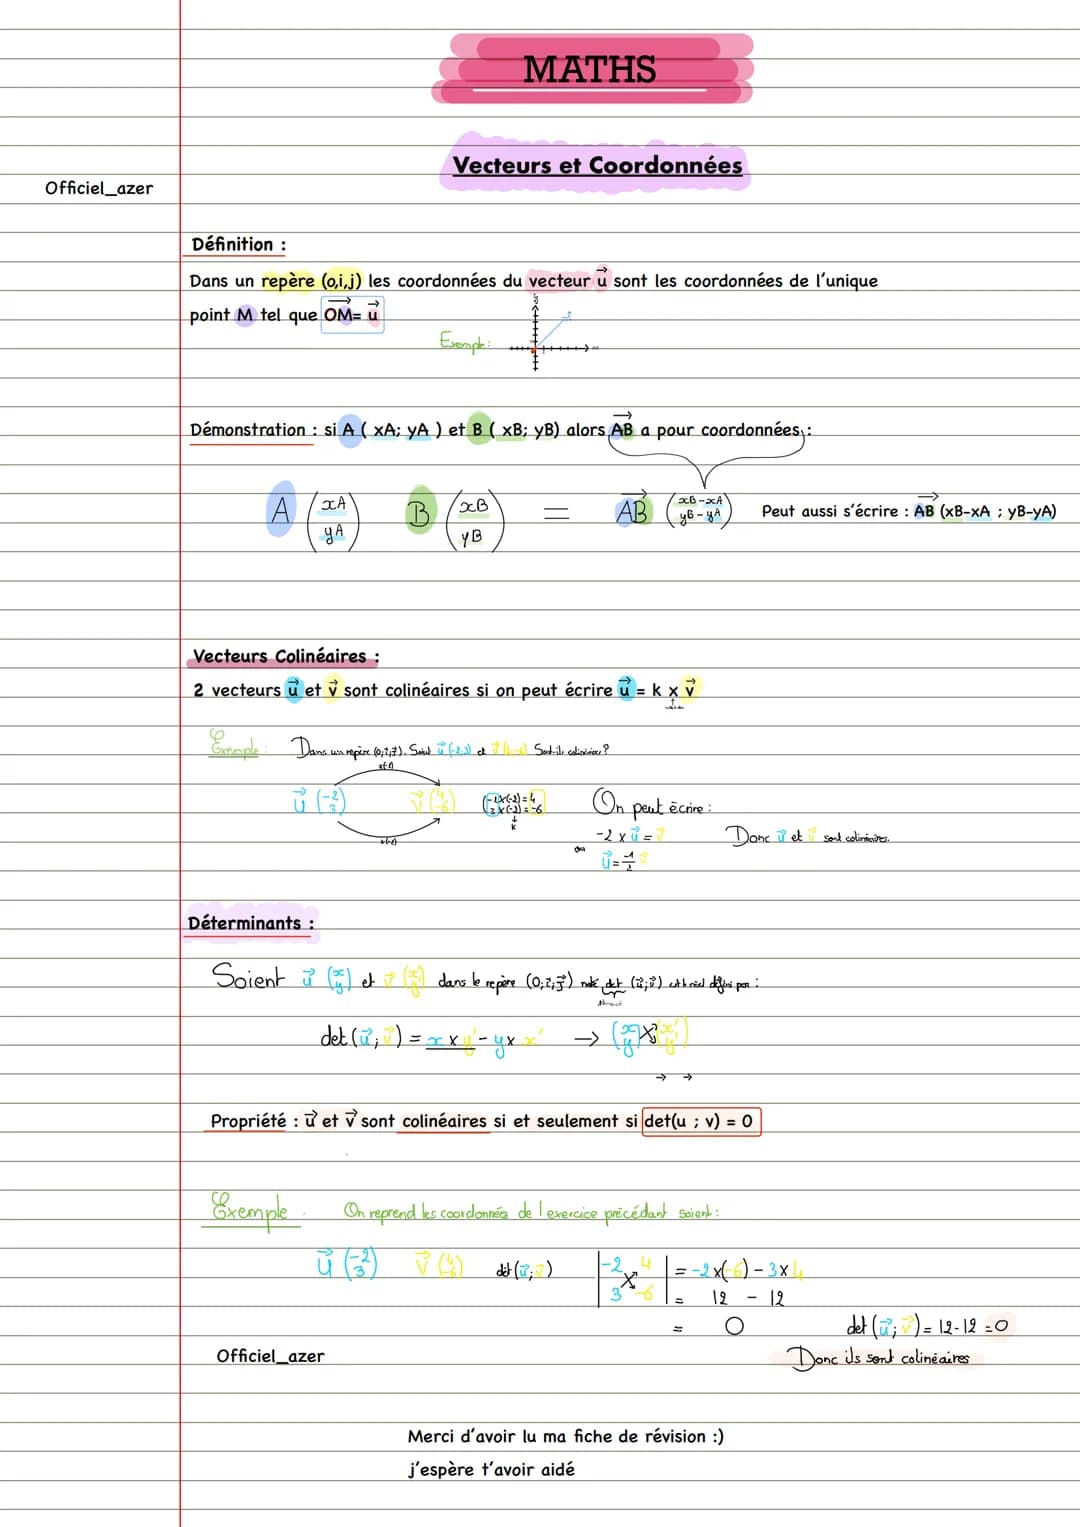 MATHS
Vecteurs et Coordonnées
Officiel_azer
Définition :
Dans un repère (o,i,j) les coordonnées du vecteur u⃗ sont les coordonnées de l'unique
point M tel que OM= u⃗
Exemple :
Démonstration : si A ( xA; yA ) et B ( xB; yB) alors AB a pour coordonnées :
A (xA yA) B (xB yB) = AB (xB-xA yB-yA) Peut aussi s'écrire : AB (xB-xA ; yB-yA)
Vecteurs Colinéaires :
2 vecteurs u⃗ et v⃗ sont colinéaires si on peut écrire u⃗ = k x v⃗
Exemple : Dans un repère (0;i⃗;j⃗). Soient u⃗ (-2,3) et v⃗ (4,-6) Sont-ils colinéaires ?
x(-2)
u⃗ (-2 3) v⃗ (4 -6) (-2x(-2)=4 3x(-2)=-6) On peut écrire :
k
x(-2)
-2 x u⃗ = v⃗ Donc u⃗ et v⃗ sont colinéaires.
ou u⃗ = -1/2 v⃗
Déterminants :
Soient u⃗ (x y) et v⃗ (x' y') dans le repère (0;i⃗;j⃗) noté det (u⃗;v⃗) est le réel défini par :
det (u⃗; v⃗) = x x y' - y x x' → (x y) (x' y')
Propriété : u⃗ et v⃗ sont colinéaires si et seulement si det(u ; v) = 0
Exemple . On reprend les coordonnées de l'exercice précédant soient :
u⃗ (-2 3) v⃗ (4 -6) det (u⃗; v⃗) |-2 4 3 -6| = -2x(-6) - 3x4
= 12 - 12
= 0
det (u⃗; v⃗) = 12-12 =0
Officiel_azer
Donc ils sont colinéaires
Merci d'avoir lu ma fiche de révision :)
j'espère t'avoir aidé